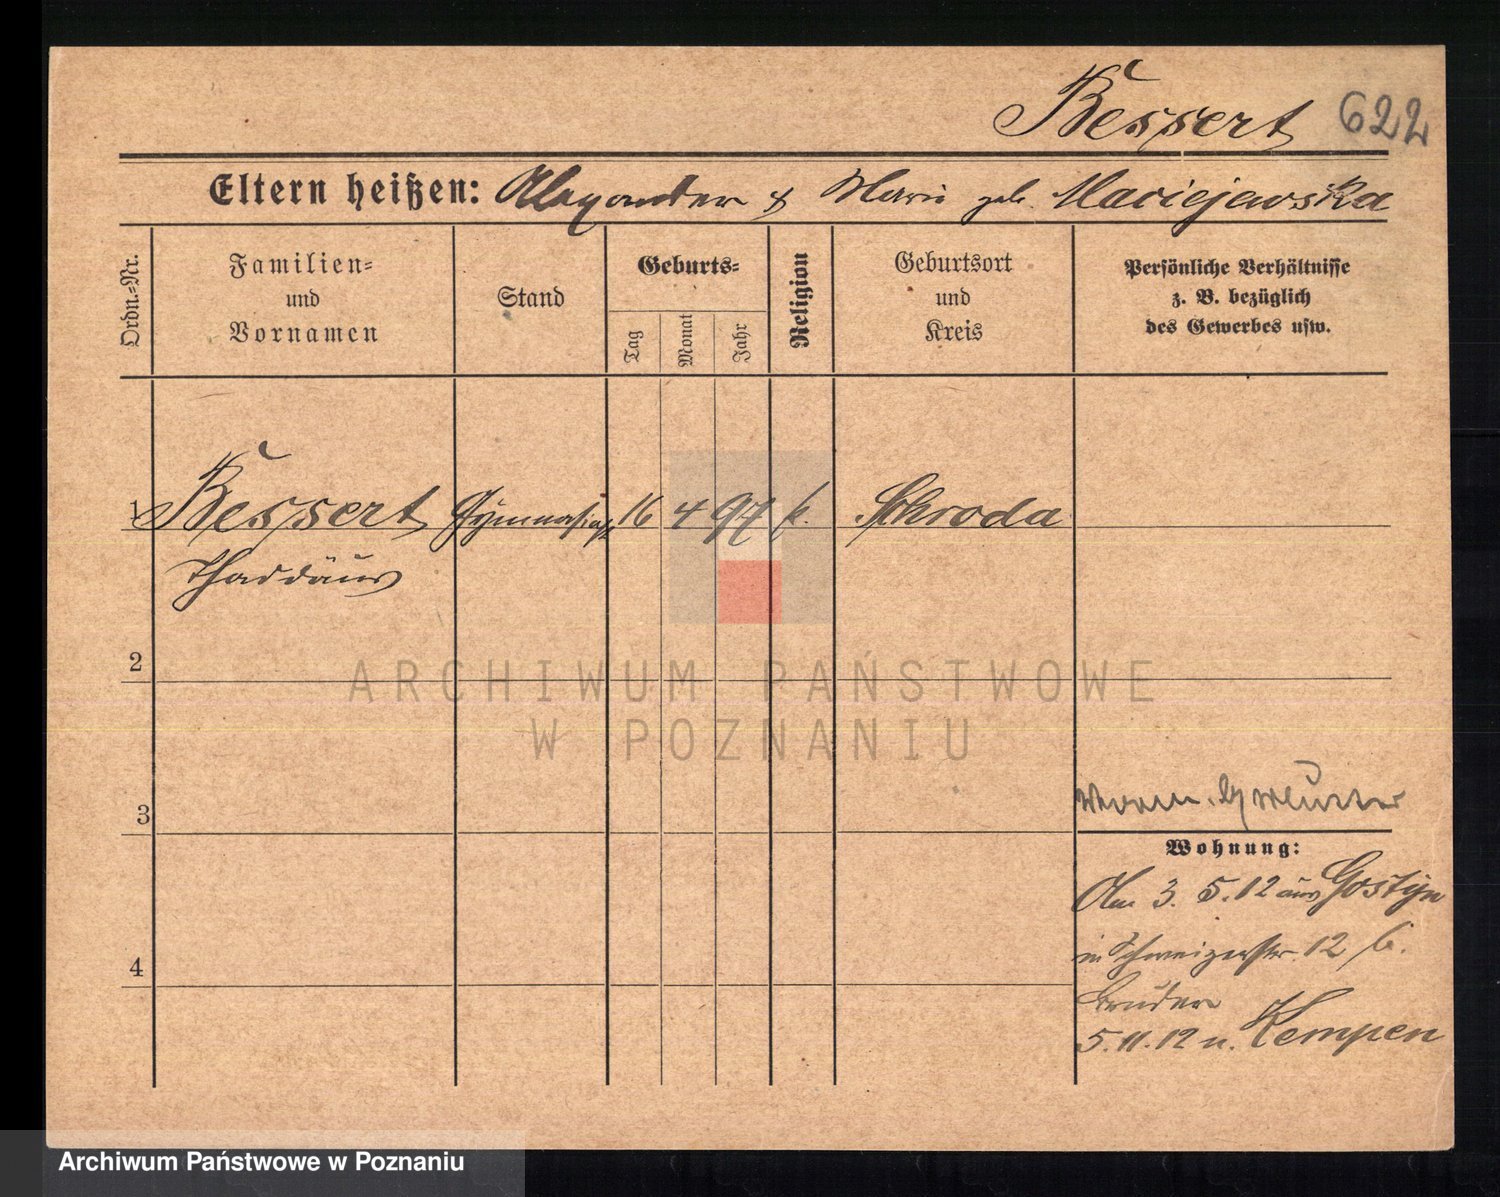 Bessert 622
Eltern heißen: Alexander & Marie geb. Maciejewska
Ordn.-Nr.
Familien-
und
Vornamen
Stand
Geburts-
Tag
Monat
Jahr
Religion
Geburtsort
und
Kreis
Persönliche Verhältnisse
z. B. bezüglich
des Gewerbes usw.
1 Bessert Gymnasiast 16 4 97 k. Schroda
Thaddäus
2
ARCHIWUM PAŃSTWOWE
W POZNANIU
3
Wohnung:
Am 3. 5. 12 aus Gostyn
in Schweizerstr. 12 b.
Bruder
4
5. 11. 12 n. Kempen
Archiwum Państwowe w Poznaniu